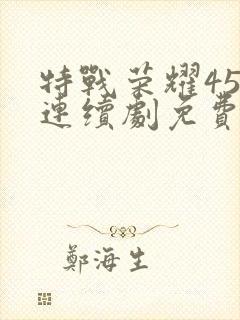 特戰荣耀45
連續劇免費
鄭海生